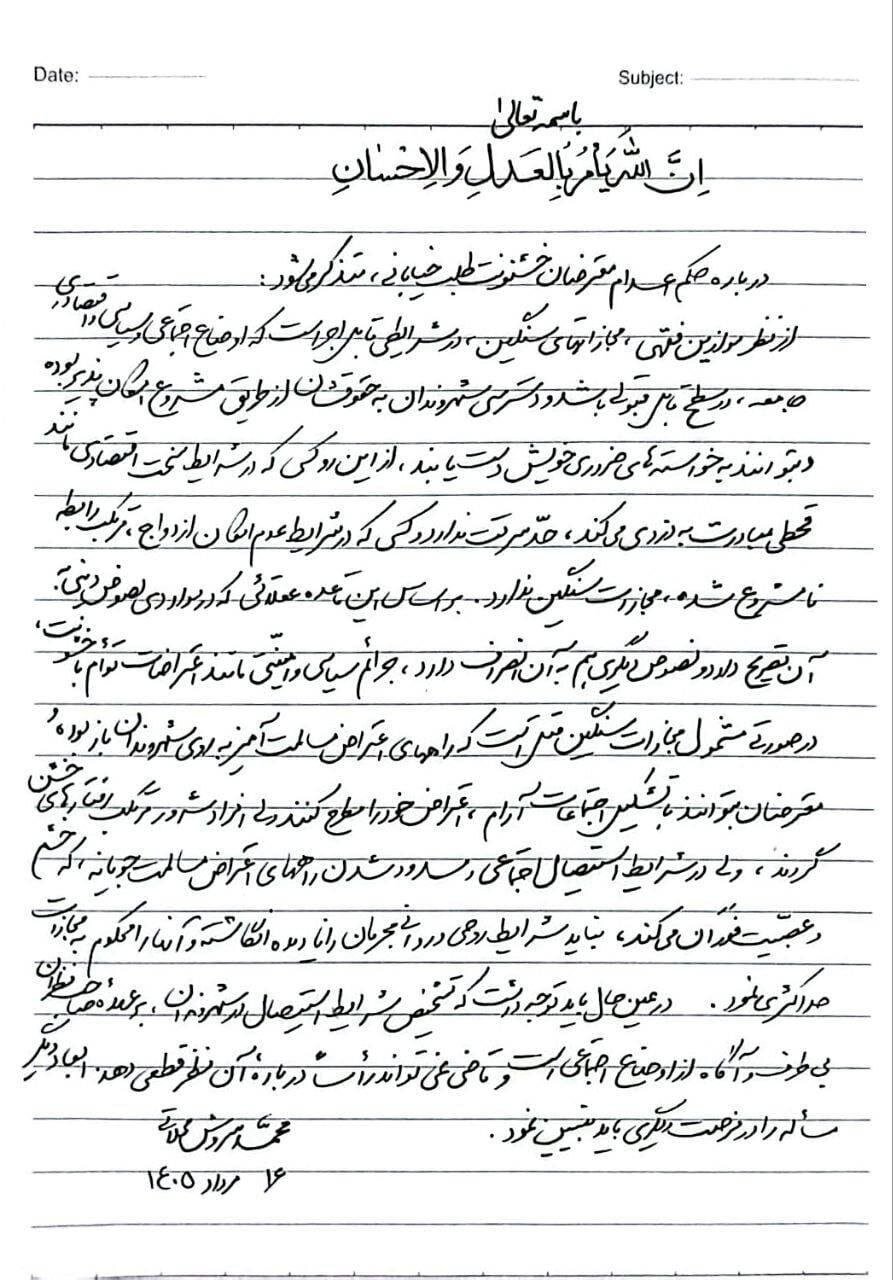 Date:
Subject:
باسمه تعالیٰ
اِنَّ اللهَ یَأمُرُ بِالعَدلِ وَالاِحْسٰانِ
درباره حکم اعدام معترضان خشونت طلب خیابانی، متذکر می‌شود:
از نظر موازین فقهی، مجازاتهای سنگین، در شرایطی قابل اجراست که اوضاع اجتماعی و سیاسی و اقتصادی
جامعه، در سطح قابل قبولی باشد و دسترسی شهروندان به حقوقشان از طریق مشروع امکان پذیر بوده
و بتوانند به خواسته‌های ضروری خویش دست یابند، از این رو کسی که در شرایط سخت اقتصادی مانند
قحطی مبادرت به دزدی می‌کند، حدّ سرقت ندارد و کسی که در شرایط عدم امکان ازدواج، مرتکب رابطه
نامشروع شده، مجازات سنگین ندارد. بر اساس این قاعده عقلائی که در مواردی نصوص دینی به
آن تصریح دارد و نصوص دیگری هم به آن انصراف دارد، جرائم سیاسی و امنیّتی مانند اعتراضات توأم با خشونت،
در صورتی مشمول مجازات سنگین قتل است که راههای اعتراض مسالمت آمیز به روی شهروندان باز بوده و
معترضان بتوانند با تشکیل اجتماعات آرام، اعتراض خود را مطرح کنند ولی افراد شرور مرتکب رفتارهای خشن
گردند، ولی در شرایط استیصال اجتماعی و مسدود شدن راههای اعتراض مسالمت جویانه، که خشم
و عصبیّت فوران می‌کند، نباید شرایط روحی و روانی مجرمان را نادیده انگاشته و آنها را محکوم به مجازات
حداکثری نمود. در عین حال باید توجه داشت که تشخیص شرایط استیصال در شهروندان، بر عهدهٔ صاحب نظران
بی طرف و آگاه از اوضاع اجتماعی است و قاضی نمی تواند رأساً در بارهٔ آن نظر قطعی دهد. ابعاد دیگر
مسأله را در فرصت دیگری باید تبیین نمود.
محمد سروش محلاتی
۱۶ مرداد ۱۴۰۵